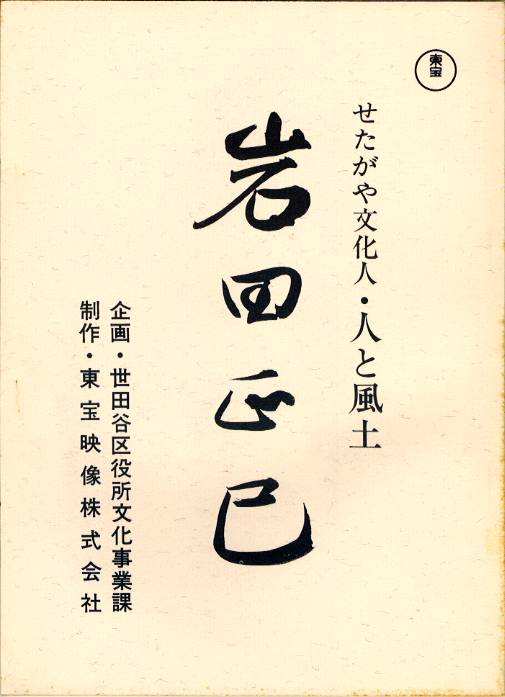 東宝
せたがや文化人・人と風土
岩田正巳
企画・世田谷区役所文化事業課
制作・東宝映像株式会社